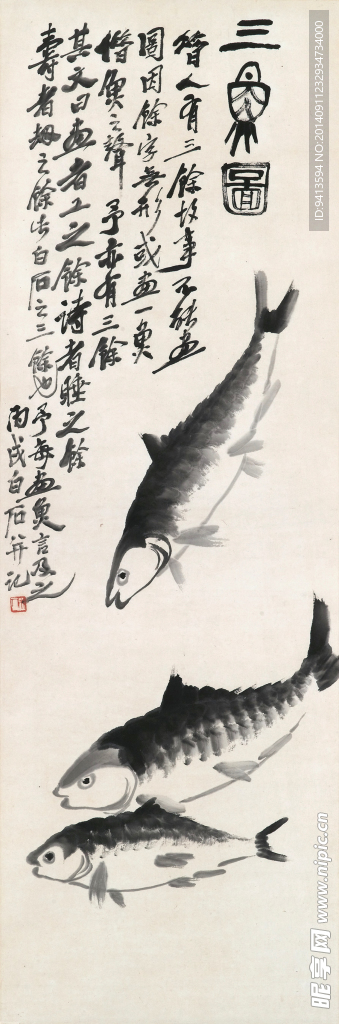 三魚圖
昔人有三餘故事不能画
圖因餘字無形或画一魚
借魚之聲予亦有三餘
其文曰画者工之餘詩者睡之餘
壽者劫之餘此白石之三餘也予每画魚言及之
丙戌白石并記
ID:9413594 NO:20140911232934734000
昵享网 www.nipic.cn